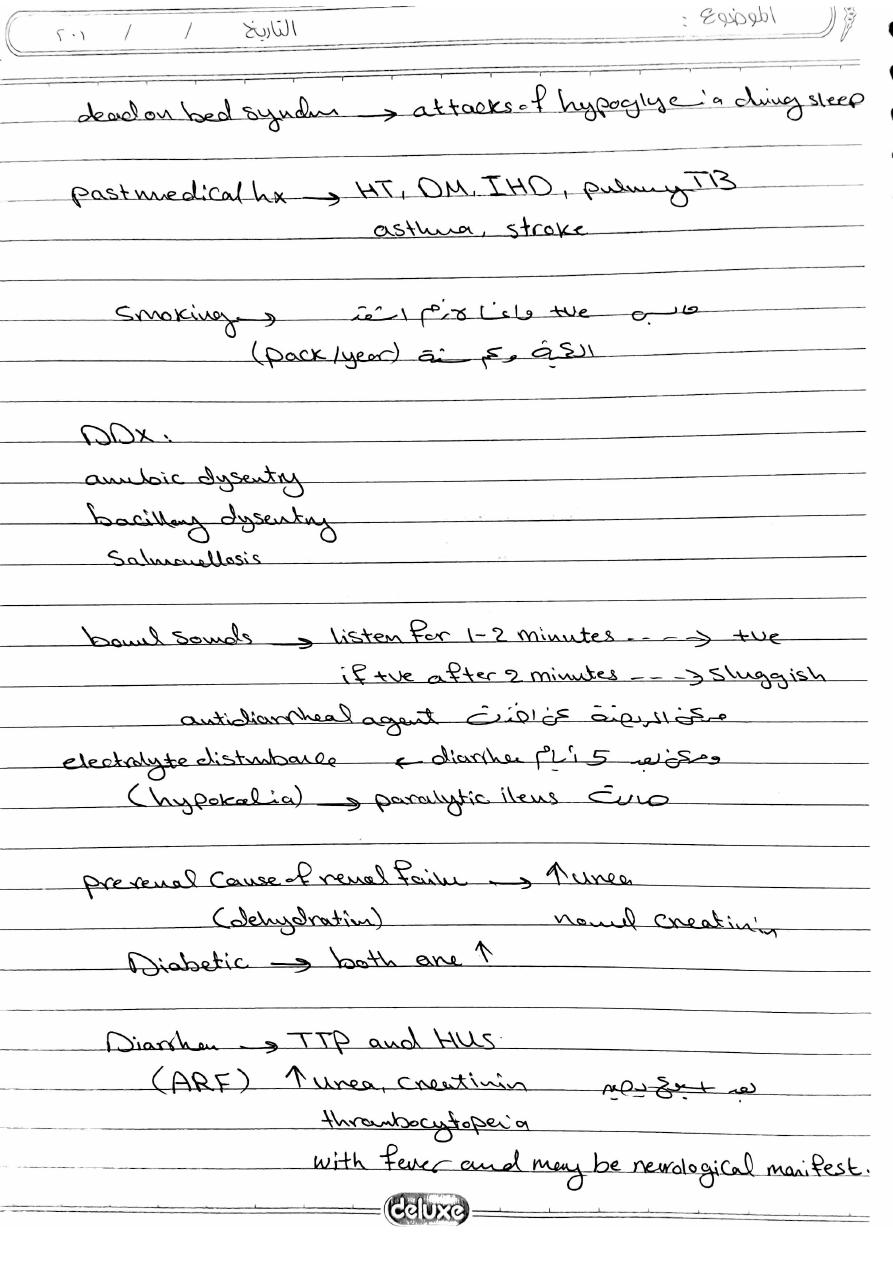 الموضوع :
التاريخ / / ٢٠١
dead on bed syndrm → attacks of hypoglyceia during sleep
past medical hx → HT, DM, IHD, pulmuy TB
asthma, stroke
Smoking → +ve لازم
الكمية وكم سنة (pack/year)
DDx:
amebic dysentry
bacillary dysentry
Salmonellosis
bowel sounds → listen for 1-2 minutes ---> +ve
if +ve after 2 minutes ---> Sluggish
ممكن المريضة antidiarrheal agent
وممكن بعد 5 أيام diarrhea ← electrolyte disturbance
(hypokalia) → paralytic ileus صارت
prerenal cause of renal failure → ↑ urea
(dehydration) normal creatinin
Diabetic → both are ↑
Diarrhea → TTP and HUS
(ARF) ↑ urea, creatinin
thrombocytopenia
with fever and may be neurological manifest.
deluxe